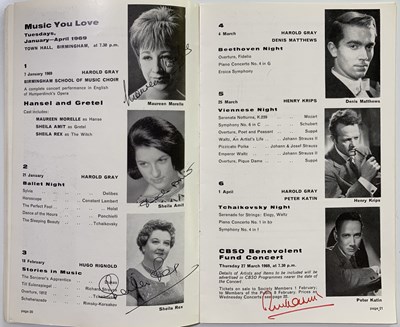 Music You Love
Tuesdays,
January—April 1969
TOWN HALL, BIRMINGHAM, at 7.30 p.m.
1
7 January 1969 HAROLD GRAY
BIRMINGHAM SCHOOL OF MUSIC CHOIR
A complete concert performance in English
of Humperdinck's Opera
Hansel and Gretel
Cast includes:
MAUREEN MORELLE as Hansel
SHEILA AMIT as Gretel
SHEILA REX as The Witch
Maureen Morelle
2
21 January HAROLD GRAY
Ballet Night
Sylvia Delibes
Horoscope Constant Lambert
The Perfect Fool Holst
Dance of the Hours Ponchielli
The Sleeping Beauty Tchaikovsky
Sheila Amit
3
18 February HUGO RIGNOLD
Stories in Music
The Sorcerer's Apprentice
Till Eulenspiegel Richard
Overture, 1812 Tchaikovsky
Scheherazade Rimsky-Korsakov
Sheila Rex
page 20
4
4 March HAROLD GRAY
DENIS MATTHEWS
Beethoven Night
Overture, Fidelio
Piano Concerto No. 4 in G
Eroica Symphony
Denis Matthews
5
25 March HENRY KRIPS
Viennese Night
Serenata Notturna, K.239 Mozart
Symphony No. 6 in C Schubert
Overture, Poet and Peasant Suppé
Waltz, An Artist's Life Johann Strauss II
Pizzicato Polka Johann & Josef Strauss
Emperor Waltz Johann Strauss II
Overture, Pique Dame Suppé
Henry Krips
6
1 April HAROLD GRAY
PETER KATIN
Tchaikovsky Night
Serenade for Strings: Elegy, Waltz
Piano Concerto No. 1 in b♭
Symphony No. 5
CBSO Benevolent
Fund Concert
Thursday 27 March 1969, at 7.30 p.m.
Details of Artists and Items to be included will be
advertised in CBSO Programmes nearer the date of
the Concert
Tickets on sale to Societies Members 1 February,
to Members of the Public 8 February. Prices as
Wednesday Concerts (see page 20).
Peter Katin
page 21